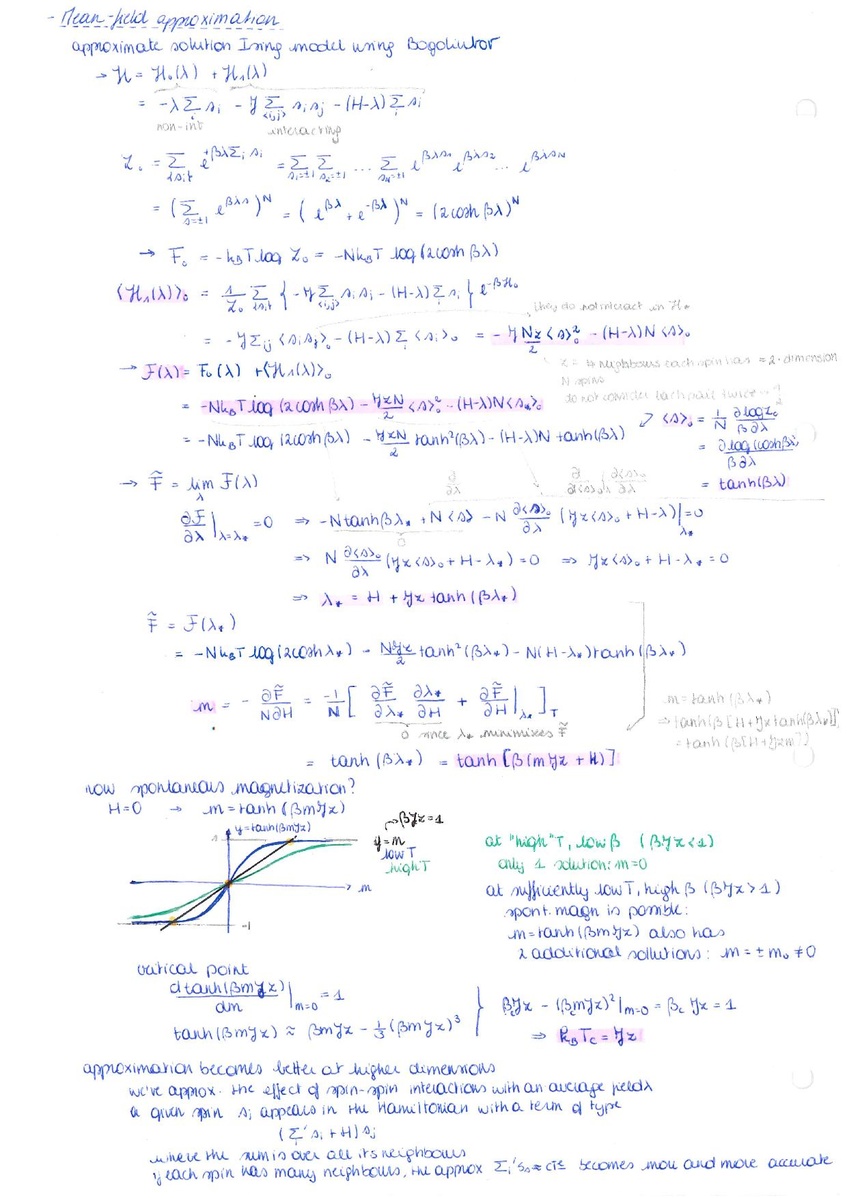 - Mean-field approximation
approximate solution Ising model using Bogoliubov
→ ℋ = ℋ₀(λ) + ℋ₁(λ)
= -λ Σ sᵢ - J Σ_<i,j> sᵢ sⱼ - (H-λ) Σ sᵢ
non-int interacting
Z₀ = Σ_{s_i} e^{+βλΣᵢ sᵢ} = Σ_{s₁=±1} Σ_{s₂=±1} ... Σ_{s_N=±1} e^{βλs₁} e^{βλs₂} ... e^{βλs_N}
= (Σ_{s=±1} e^{βλs})^N = (e^{βλ} + e^{-βλ})^N = (2cosh βλ)^N
→ F₀ = -k_BT log Z₀ = -Nk_BT log(2cosh βλ)
⟨ℋ₁(λ)⟩₀ = 1/Z₀ Σ_{s_i} { -J Σ_<i,j> sᵢ sⱼ - (H-λ) Σ sᵢ } e^{-βℋ₀}
they do not interact in ℋ₀
= -J Σᵢⱼ <sᵢ sⱼ>₀ - (H-λ) Σᵢ <sᵢ>₀ = -J Nz/2 <s>₀² - (H-λ) N <s>₀
z = # neighbours each spin has = 2·dimension
N spins
do not consider each pair twice → ½
→ F(λ) = F₀(λ) + ⟨ℋ₁(λ)⟩₀
= -Nk_BT log(2cosh βλ) - JzN/2 <s>₀² - (H-λ)N<s>₀
= -Nk_BT log(2cosh βλ) - JzN/2 tanh²(βλ) - (H-λ)N tanh(βλ)
<s>₀ = 1/N ∂logZ₀/β∂λ
= ∂log(cosh βλ)/β∂λ
= tanh(βλ)
→ F̃ = lim_λ F(λ)
∂/∂λ ∂/∂<s>₀ ∂<s>₀/∂λ
∂F/∂λ|_{λ=λ*} = 0 ⇒ -N tanh βλ* + N<s> - N ∂<s>₀/∂λ (Jz<s>₀ + H-λ)|_{λ*} = 0
0
⇒ N ∂<s>₀/∂λ (Jz<s>₀ + H-λ*) = 0 ⇒ Jz<s>₀ + H-λ* = 0
⇒ λ* = H + Jz tanh(βλ*)
F̃ = F(λ*)
= -Nk_BT log(2cosh λ*) - NJz/2 tanh²(βλ*) - N(H-λ*) tanh(βλ*)
m = - ∂F̃/N∂H = -1/N [ ∂F̃/∂λ* ∂λ*/∂H + ∂F̃/∂H|_{λ*} ]_T
0 since λ* minimizes F̃
m = tanh(βλ*)
⇒ tanh(β[H+Jz tanh(βλ*)])
= tanh(β[H+Jzm])
= tanh(βλ*) = tanh[β(mJz + H)]
now spontaneous magnetization?
H=0 → m = tanh(βmJz)
y=tanh(βmJz)
1
→ βJz=1
y=m
low T
high T
m
-1
at "high" T, low β (βJz<1)
only 1 solution: m=0
at sufficiently low T, high β (βJz>1)
spont. magn is possible:
m=tanh(βmJz) also has
2 additional sollutions: m = ±m₀ ≠ 0
critical point
dtanh(βmJz)/dm |_{m=0} = 1
tanh(βmJz) ≈ βmJz - ⅓(βmJz)³
βJz - (βmJz)²|_{m=0} = β_c Jz = 1
⇒ k_BT_c = Jz
approximation becomes better at higher dimensions
we've approx. the effect of spin-spin interactions with an average field λ
a given spin sⱼ appears in the Hamiltonian with a term of type
(Σ' sᵢ + H)sⱼ
where the sum is over all its neighbours
if each spin has many neighbours, the approx Σᵢ' sᵢ ≈ cte becomes more and more accurate